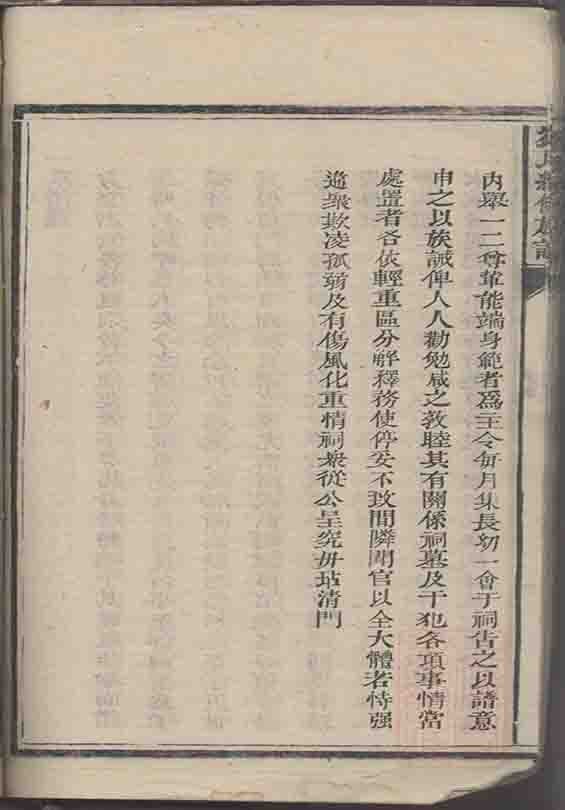 內舉一二尊輩能端身範者爲主令每月集長幼一會于祠告之以譜意
申之以族誡俾人人勸勉咸之敦睦其有關係祠墓及干犯各項事情當
處置者各依輕重區分解釋務使停妥不致間隣聞官以全大體若恃强
逞衆欺凌孤弱及有傷風化重情祠衆從公呈究毋玷清門